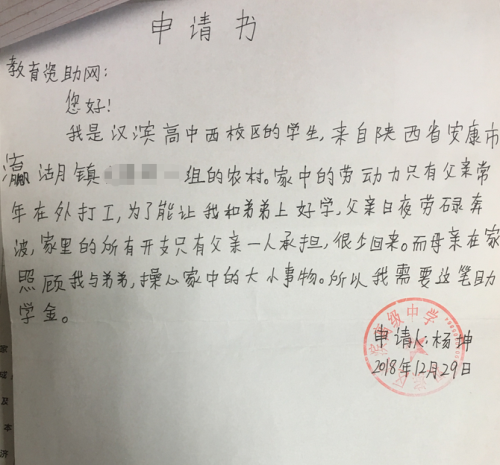 申请书
教育资助网:
您好!
我是汉滨高中西校区的学生,来自陕西省安康市
瀛湖镇 组的农村。家中的劳动力只有父亲常
年在外打工,为了能让我和弟弟上好学,父亲日夜劳碌奔
波,家里的所有开支只有父亲一人承担,很少回来。而母亲在家
照顾我与弟弟,操心家中的大小事物。所以我需要这笔助
学金。
申请人:杨坤
2018年12月29日
级中学